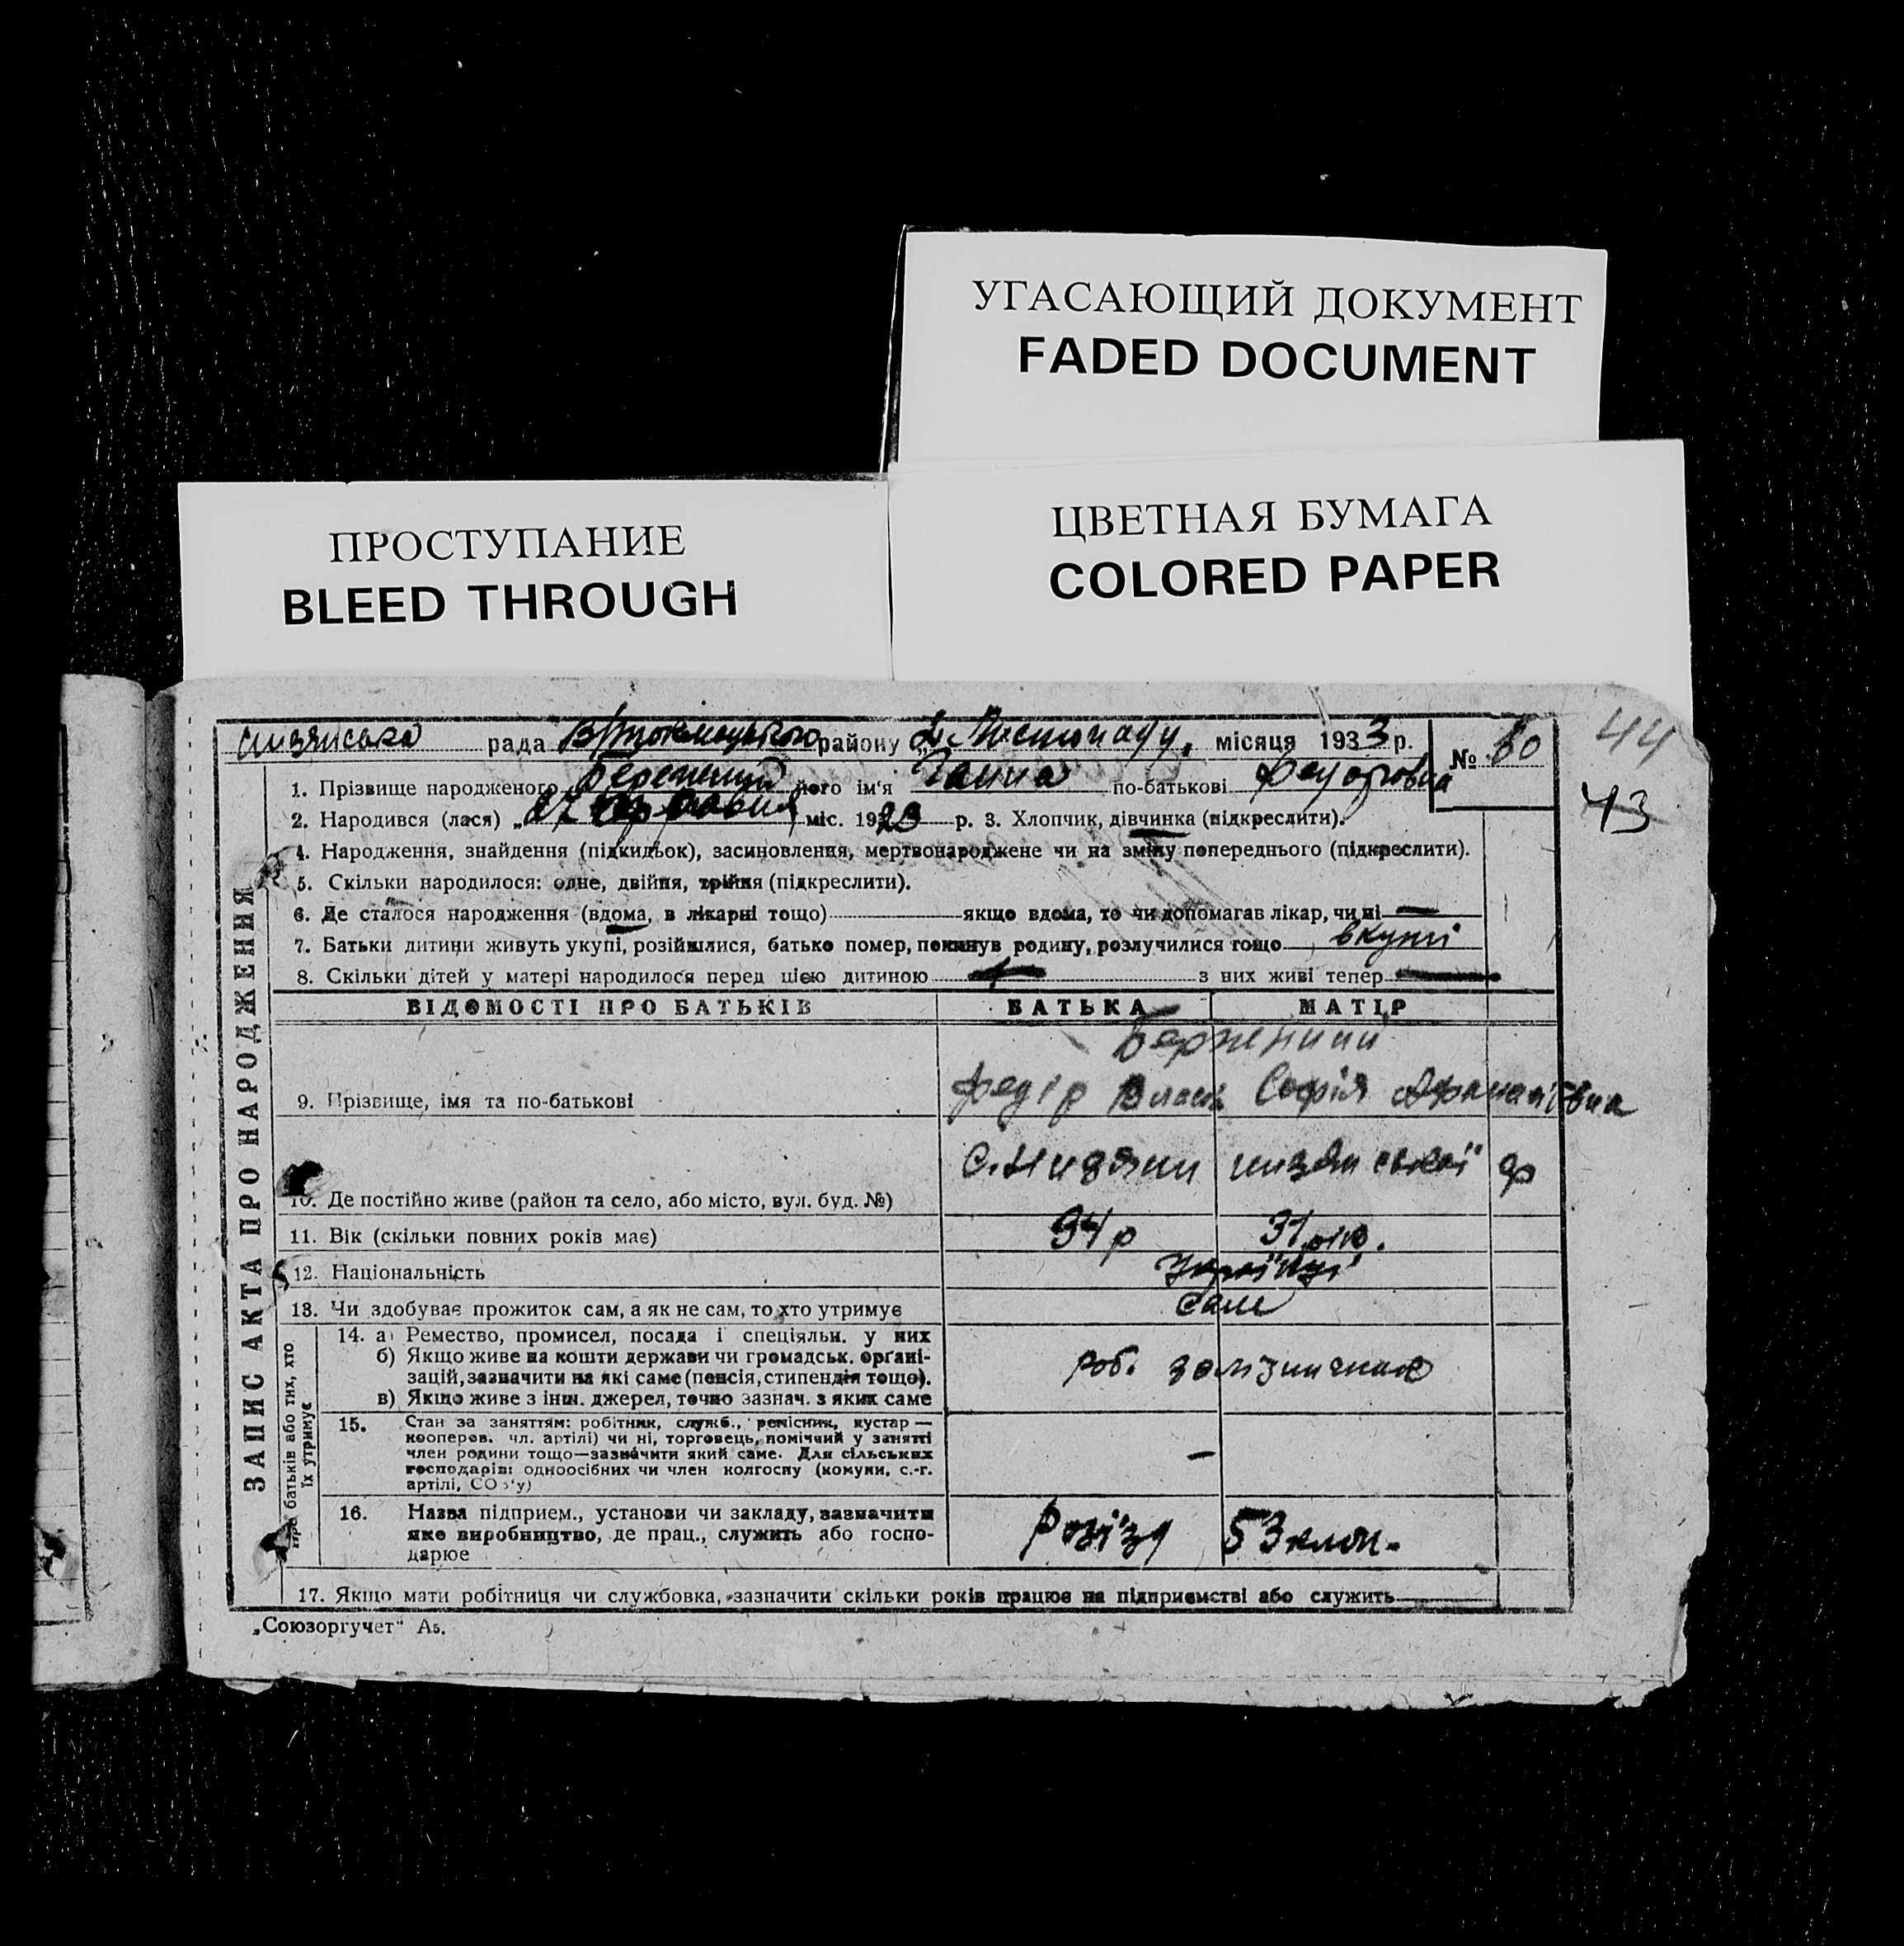 УГАСАЮЩИЙ ДОКУМЕНТ
FADED DOCUMENT
ЦВЕТНАЯ БУМАГА
COLORED PAPER
ПРОСТУПАНИЕ
BLEED THROUGH
44
43
рада району місяця 1933 р.
№
1. Прізвище народженого його ім'я Ганна по-батькові
2. Народився (лася) „27 міс. 19 р. 3. Хлопчик, дівчинка (підкреслити).
4. Народження, знайдення (підкидьок), засиновлення, мертвонароджене чи на зміну попереднього (підкреслити).
5. Скільки народилося: одне, двійня, трійня (підкреслити).
6. Де сталося народження (вдома, в лікарні тощо) якщо вдома, то чи допомагав лікар, чи ні —
7. Батьки дитини живуть укупі, розійшлися, батько помер, покинув родину, розлучилися тощо вкупі
8. Скільки дітей у матері народилося перед цією дитиною з них живі тепер
ЗАПИС АКТА ПРО НАРОДЖЕННЯ
ВІДОМОСТІ ПРО БАТЬКІВ БАТЬКА МАТІР
9. Прізвище, імя та по-батькові Федір Софія
10. Де постійно живе (район та село, або місто, вул. буд. №)
11. Вік (скільки повних років має) 31
12. Національність
13. Чи здобуває прожиток сам, а як не сам, то хто утримує сам
батьків або тих, хто їх утримує
14. а) Ремество, промисел, посада і спеціяльн. у них
б) Якщо живе на кошти держави чи громадськ. органі-
зацій, зазначити на які саме (пенсія, стипендія тощо).
в) Якщо живе з інш. джерел, точно зазнач. з яких саме
роб.
15. Стан за заняттям: робітник, служб., ремісник, кустар —
кооперов. чл. артілі) чи ні, торговець, помічний у занятті
член родини тощо—зазначити який саме. Для сільських
господарів: одноосібних чи член колгоспу (комуни, с.-г.
артілі, СОЗ'у)
—
16. Назва підприєм., установи чи закладу, зазначити
яке виробництво, де прац., служить або госпо-
дарює
Розізд 53 клм.
17. Якщо мати робітниця чи службовка, зазначити скільки років працює на підприємстві або служить
„Союзоргучет" А5.